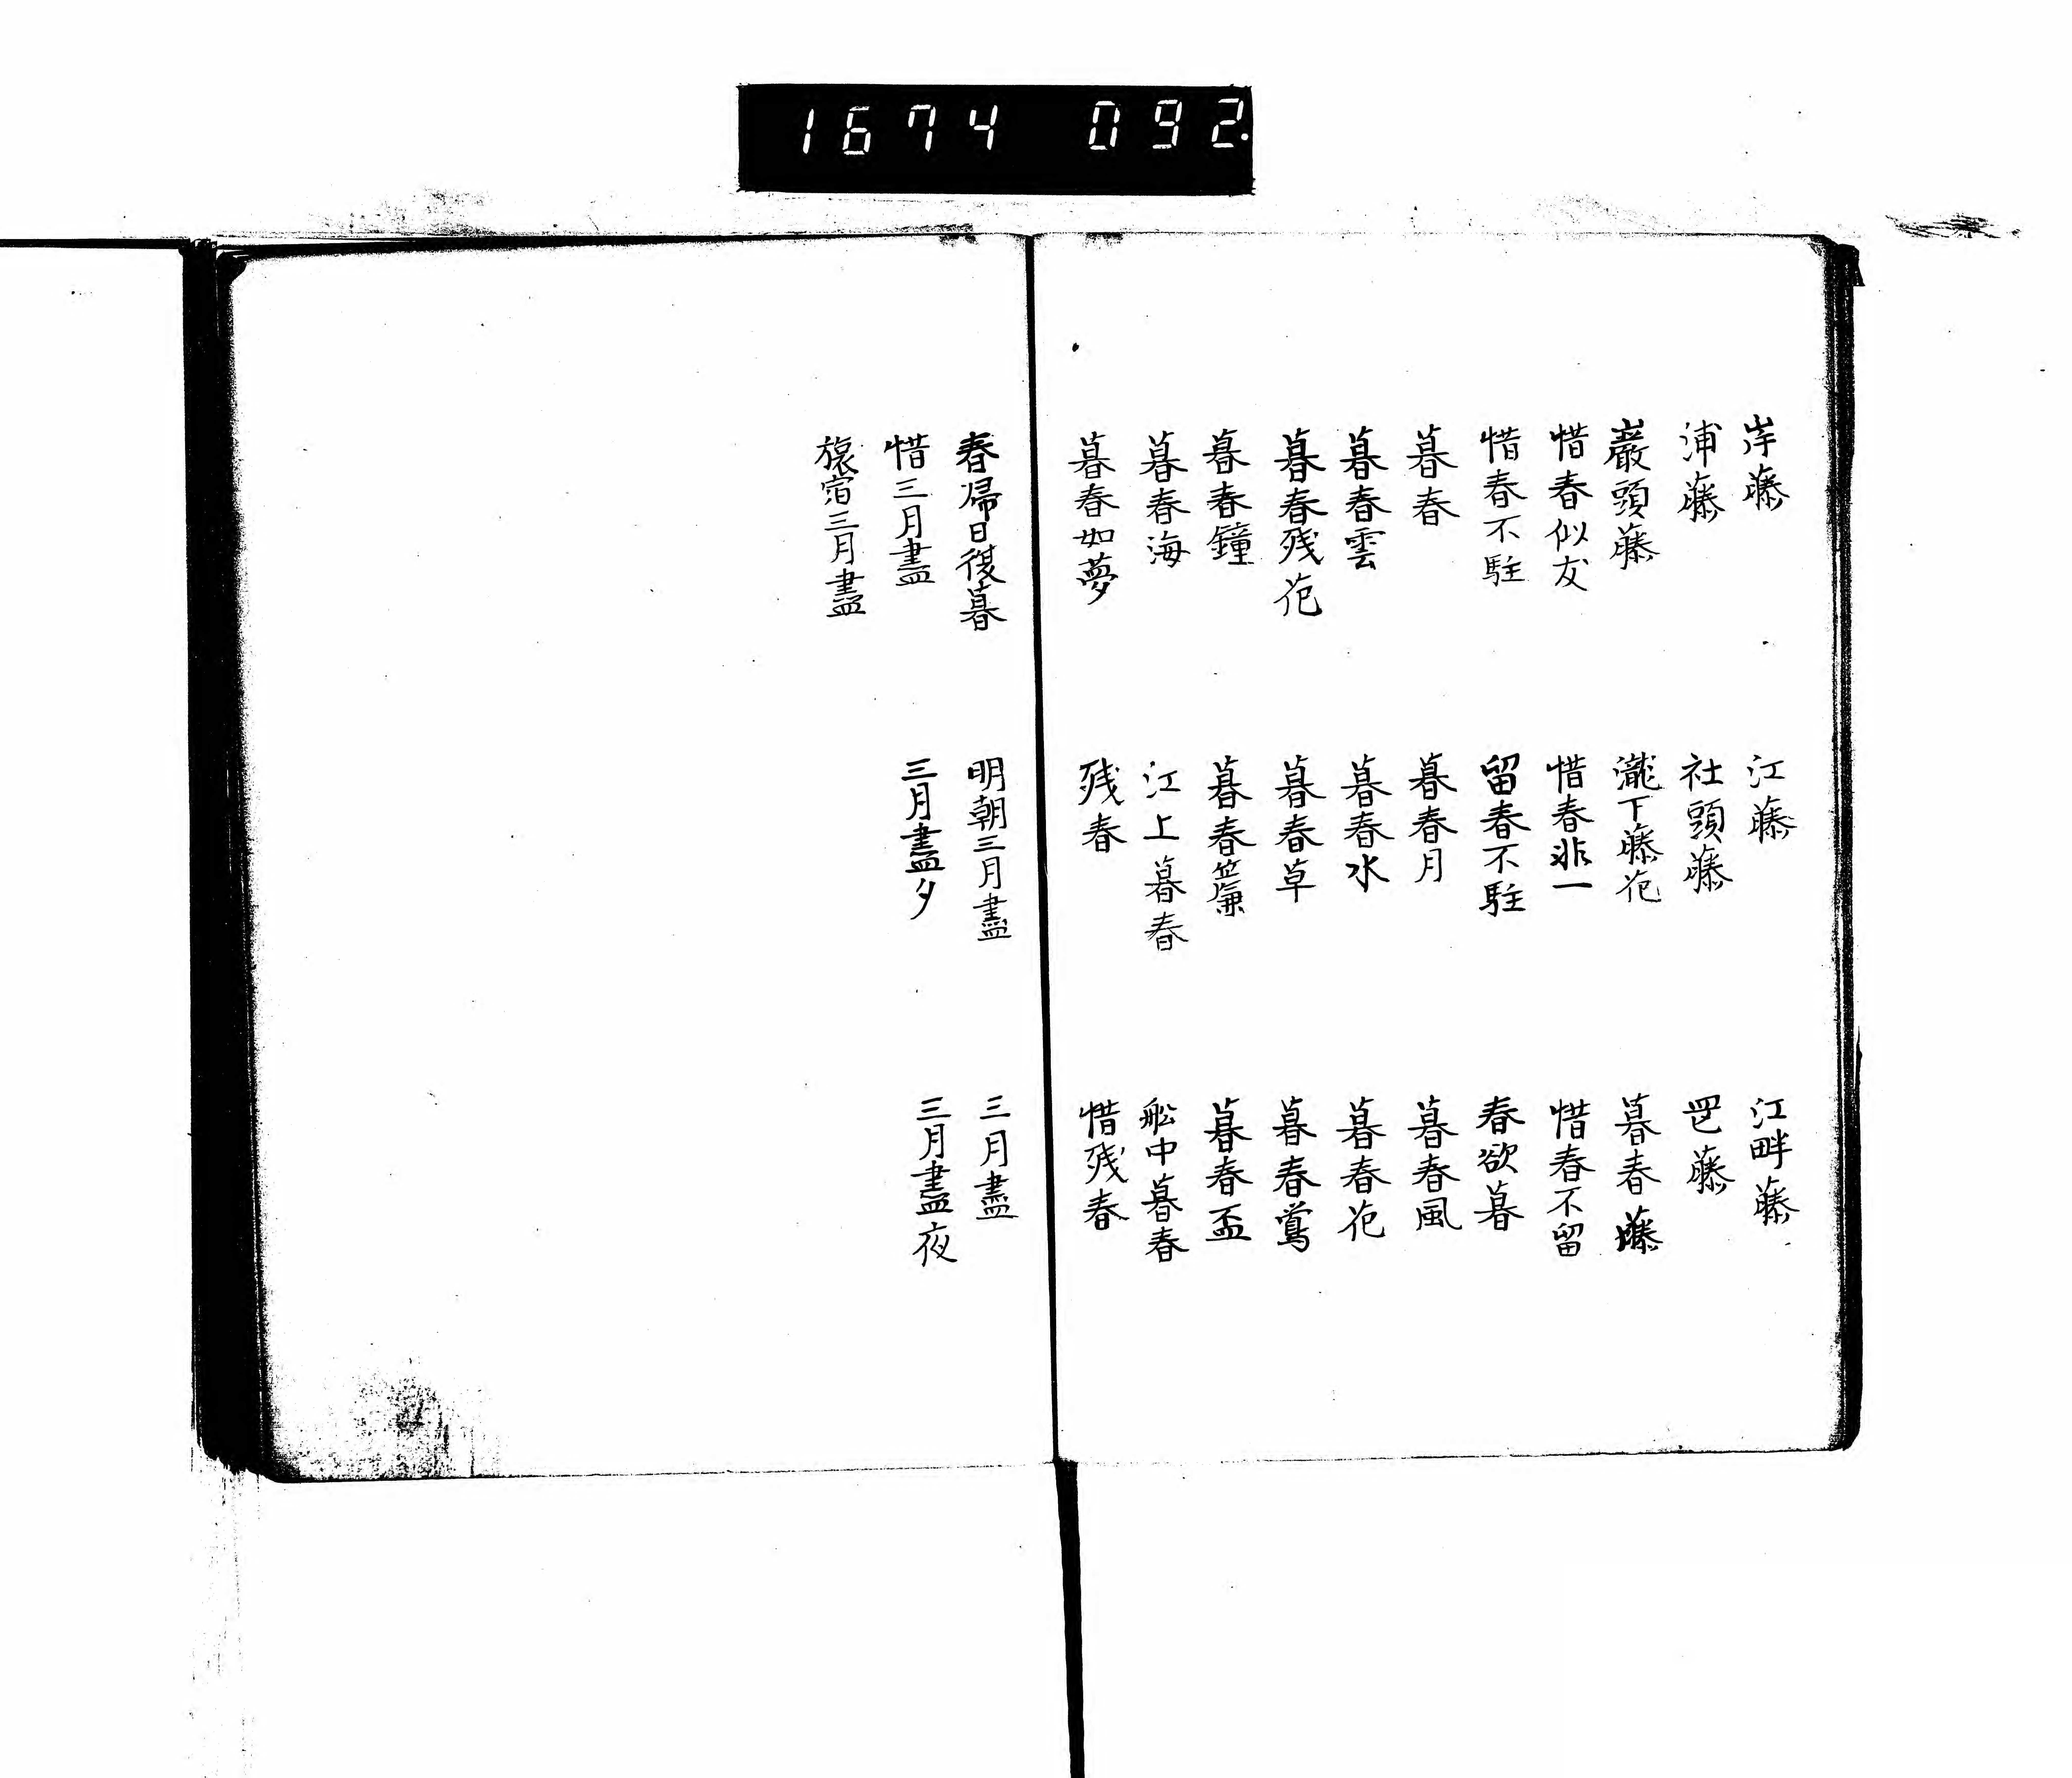 1674 092
岸藤 江藤 江畔藤
浦藤 社頭藤 藤
巌頭藤 瀧下藤花 暮春藤
惜春似友 惜春非一 惜春不留
惜春不駐 留春不駐 春欲暮
暮春 暮春月 暮春風
暮春雲 暮春水 暮春花
暮春残花 暮春草 暮春鶯
暮春鐘 暮春簾 暮春盃
暮春海 江上暮春 舩中暮春
暮春如夢 残春 惜残春
春帰日復暮 明朝三月盡 三月盡
惜三月盡 三月盡夕 三月盡夜
旅宿三月盡